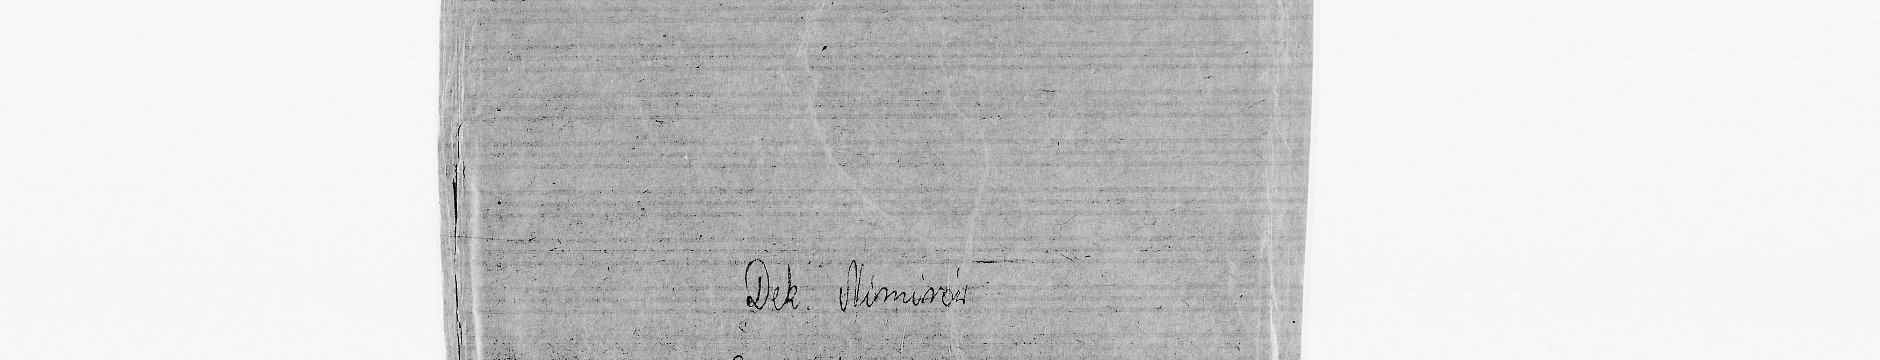 Dek. Nimirów